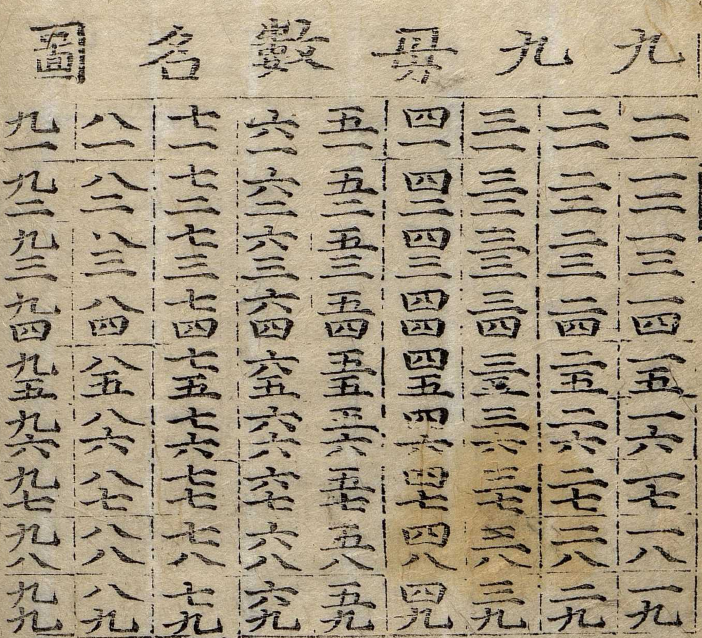 九九母數名圖
一一 一二 一三 一四 一五 一六 一七 一八 一九
二一 二二 二三 二四 二五 二六 二七 二八 二九
三一 三二 三三 三四 三五 三六 三七 三八 三九
四一 四二 四三 四四 四五 四六 四七 四八 四九
五一 五二 五三 五四 五五 五六 五七 五八 五九
六一 六二 六三 六四 六五 六六 六七 六八 六九
七一 七二 七三 七四 七五 七六 七七 七八 七九
八一 八二 八三 八四 八五 八六 八七 八八 八九
九一 九二 九三 九四 九五 九六 九七 九八 九九